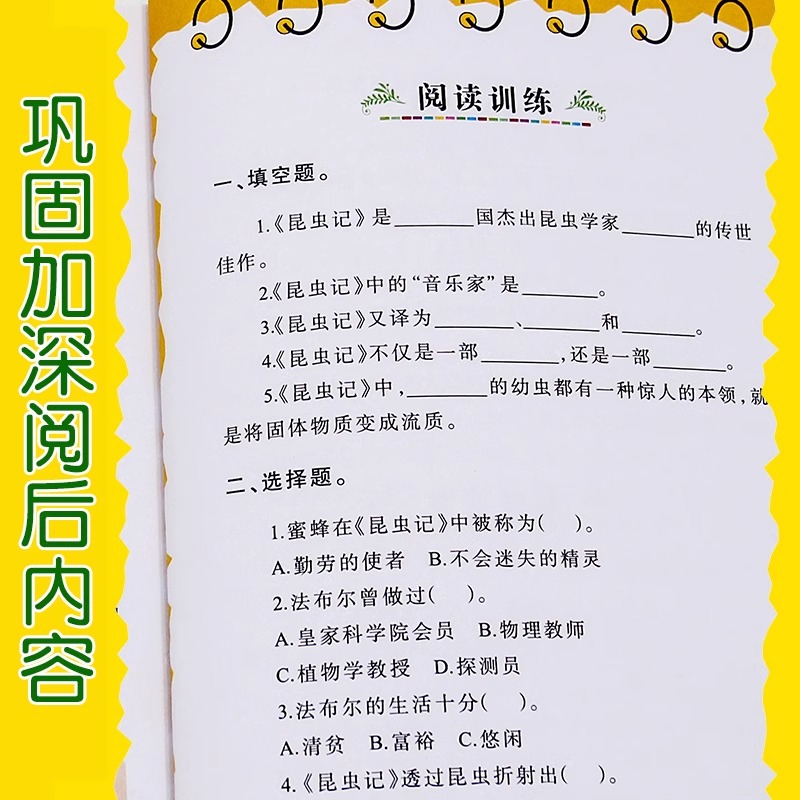 巩固加深阅后内容
阅读训练
一、填空题。
1.《昆虫记》是________国杰出昆虫学家________的传世
佳作。
2.《昆虫记》中的“音乐家”是________。
3.《昆虫记》又译为________、________和________。
4.《昆虫记》不仅是一部________,还是一部________。
5.《昆虫记》中,________的幼虫都有一种惊人的本领,就
是将固体物质变成流质。
二、选择题。
1.蜜蜂在《昆虫记》中被称为( )。
A.勤劳的使者 B.不会迷失的精灵
2.法布尔曾做过( )。
A.皇家科学院会员 B.物理教师
C.植物学教授 D.探测员
3.法布尔的生活十分( )。
A.清贫 B.富裕 C.悠闲
4.《昆虫记》透过昆虫折射出( )。